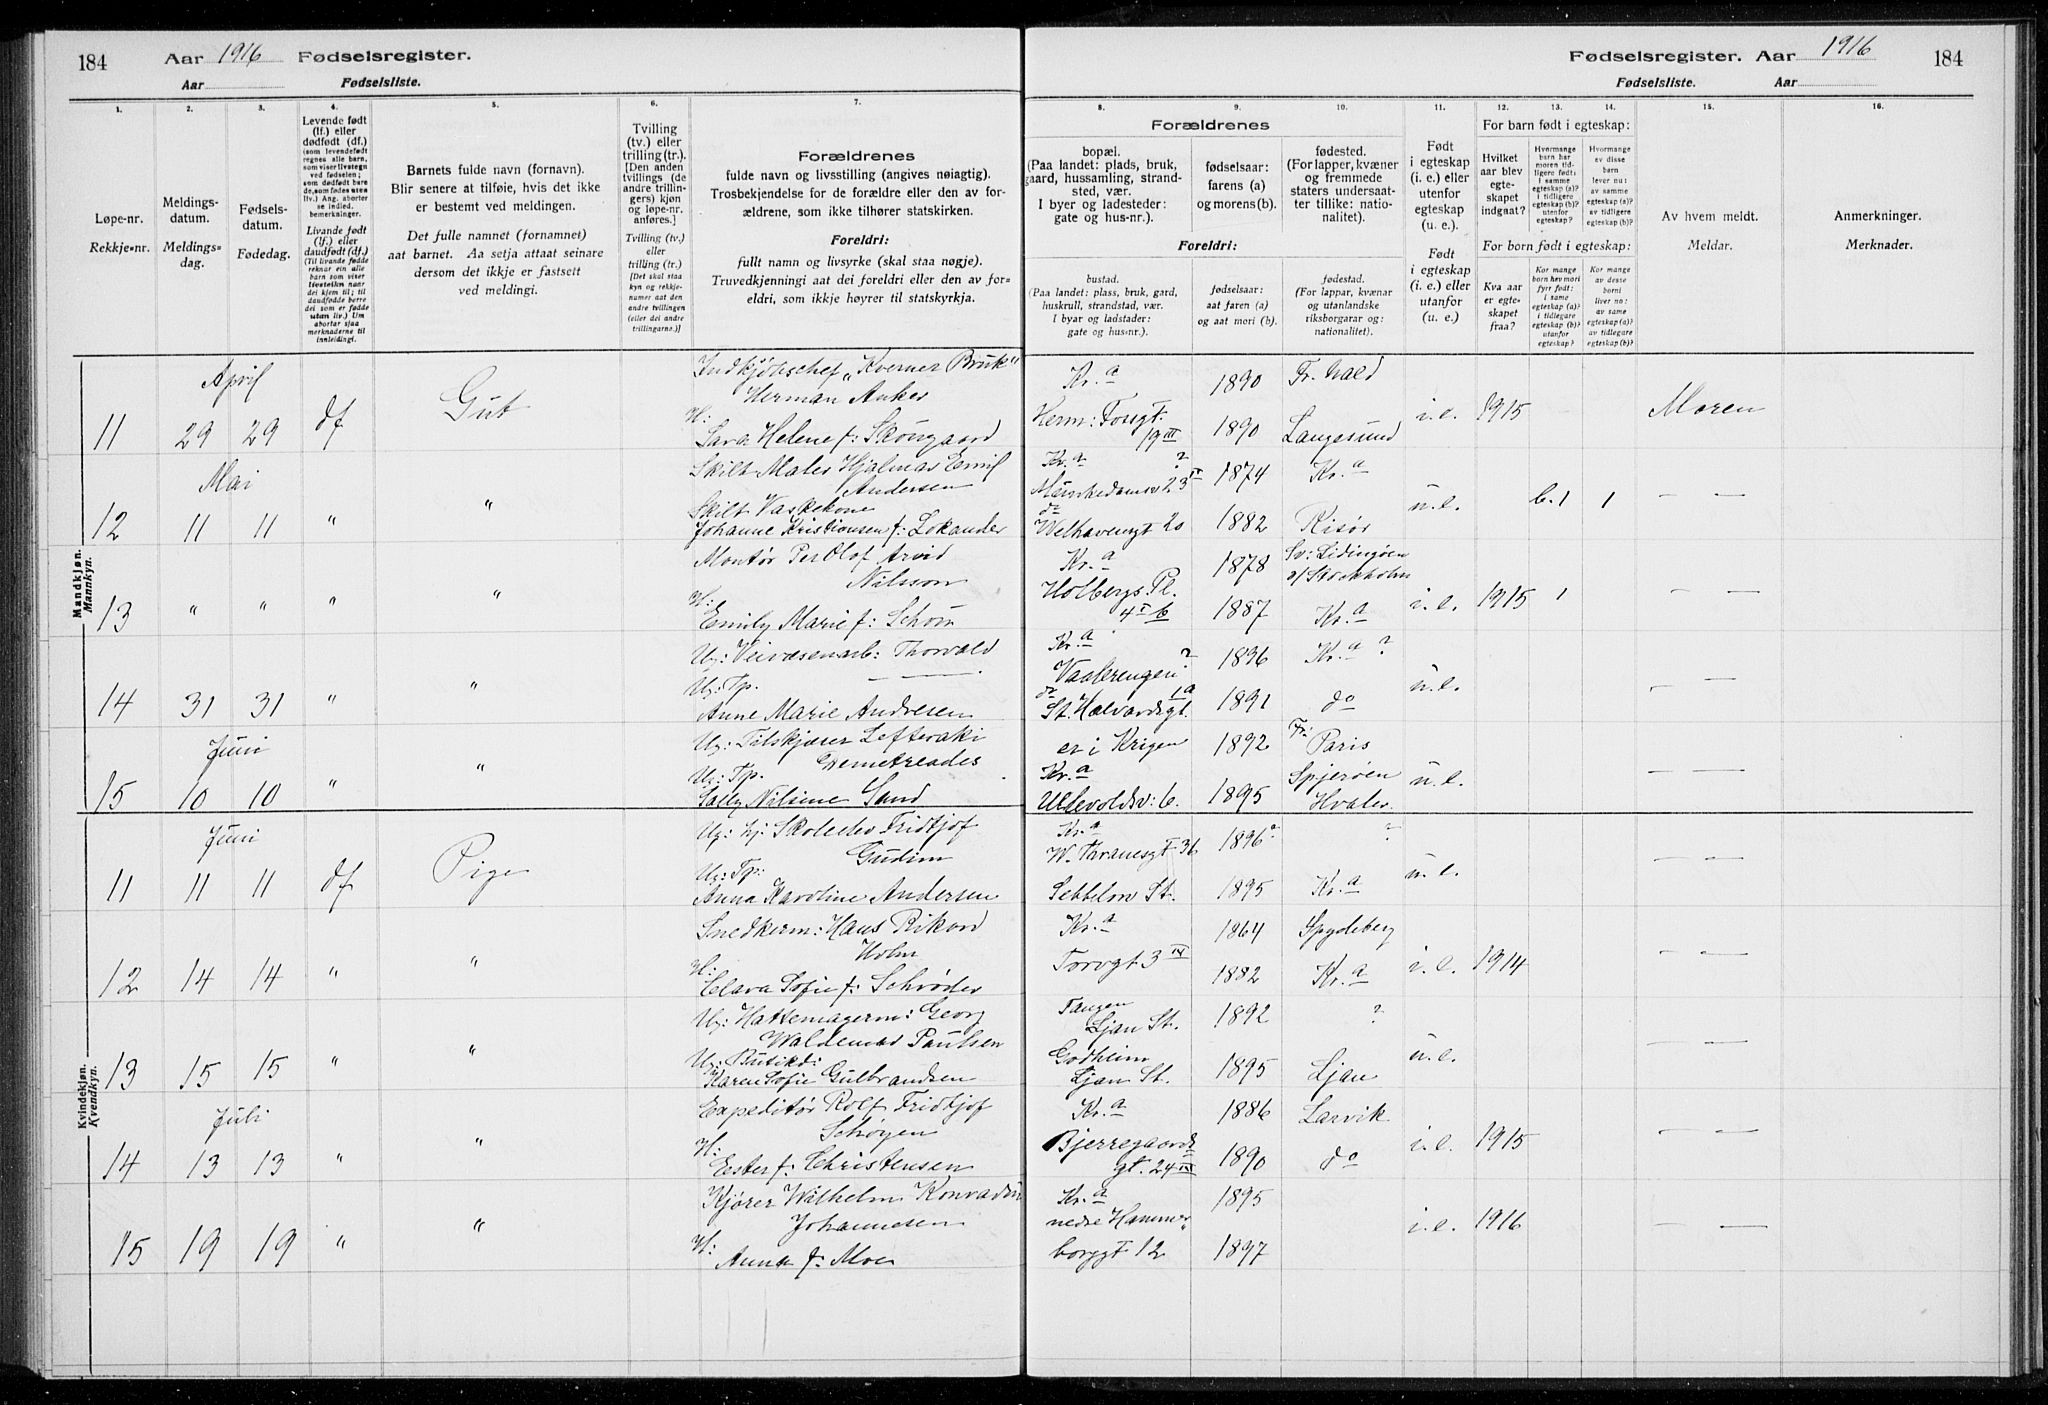 184 Aar 1916 Fødselsregister.
Aar Fødselsliste.
Fødselsregister. Aar 1916 184
Fødselsliste. Aar
1. 2. 3. 4. 5. 6. 7.
Løpe-nr.
Rekkje-nr.
Meldings-
datum.
Meldings-
dag.
Fødsels-
datum.
Fødedag.
Levende født
(lf.) eller
dødfødt (df.)
(som levendefødt
regnes alle barn,
som viser livstegn
ved fødselen;
som dødfødt bare
de, som fødes uten
liv.) Ang. aborter
se indled.
bemerkninger.
Livande født
(lf.) eller
daudfødt (df.)
(Til livande fødde
reknar ein alle
barn som viser
livsteikn naar
dei kjem til; til
daudfødde berre
dei som er fødde
utan liv.) Um
abortar sjaa
merknaderne til
innleidingi.
Barnets fulde navn (fornavn).
Blir senere at tilføie, hvis det ikke
er bestemt ved meldingen.
Det fulle namnet (fornamnet)
aat barnet. Aa setja attaat seinare
dersom det ikkje er fastsett
ved meldingi.
Tvilling
(tv.) eller
trilling (tr.).
[Den anden
tvillings (de
andre trillin-
gers) kjøn
og løpe-nr.
anføres.]
Tvilling (tv.)
eller
trilling (tr.)
[Det skal staa
kyn og rekkje-
numer aat den
andre tvillingen
(eller dei andre
trillingarne.)]
Forældrenes
fulde navn og livsstilling (angives nøiagtig).
Trosbekjendelse for de forældre eller den av for-
ældrene, som ikke tilhører statskirken.
Foreldri:
fullt namn og livsyrke (skal staa nøgje).
Truvedkjenningi aat dei foreldri eller den av for-
eldri, som ikkje høyrer til statskyrkja.
8. 9. 10. 11. 12. 13. 14. 15. 16.
Forældrenes
bopæl.
(Paa landet: plads, bruk,
gaard, hussamling, strand-
sted, vær.
I byer og ladesteder:
gate og hus-nr.).
fødselsaar:
farens (a)
og morens (b).
fødested.
(For lapper, kvæner
og fremmede
staters undersaat-
ter tillike: natio-
nalitet).
Foreldri:
bustad.
(Paa landet: plass, bruk, gard,
huskrull, strandstad, vær.
I byar og ladstader:
gate og hus-nr.).
fødselsaar:
aat faren (a)
og aat mori (b).
fødestad.
(For lappar, kvænar
og utanlandske
riksborgarar og:
nationalitet).
Født
i egteskap
(i. e.) eller
utenfor
egteskap
(u. e.).
Født
i egteskap
(i. e.) eller
utanfor
(u. e.).
For barn født i egteskap:
Hvilket
aar blev
egte-
skapet
indgaat?
Hvormange
barn har
moren tid-
ligere født:
i samme
egteskap (a)?
i tidligere
egteskap (b)?
utenfor
egteskap?
Hvormange
av disse
barn
lever nu:
av samme
egteskap (a)?
av tidligere
egteskap (b)?
For born født i egteskap:
Kva aar
er egte-
skapet
fraa?
Kor mange
born hev mori
fyrr født:
i same
egteskap (a)?
i tidlegare
egteskap (b)?
utanfor
egteskap?
Kor mange
av desse
borni
liver no:
av same
egteskap (a)?
av tidlegare
egteskap (b)?
Av hvem meldt.
Meldar.
Anmerkninger.
Merknader.
Mandkjøn.
Mannkyn.
April
11 29 29 df Gut
Indkjøpschef "Kverner Bruk"
Herman Anker
H:
Sara Helene f: Skougaard
Kr.a 1890 Fr. hald
Herm: Fossgt. 19 III 1890 Langesund i.e. 1915 Moren
Mai
12 11 11 " "
Skilt Maler Hjalmar Emil
Andersen
Skilt Vaskekone
Johanne Kristiansen f: Lokander
Kr.a ? 1874 Kr.a
Munkedamsv 23 II
do
Welhavensgt 20 1882 Risør u.e. b.1 1 — —
13 " " " "
Montør Per Olof Arvid
Nilsson
H:
Emily Marie f: Schou
Kr.a 1878 Sv: Lidingøen
v/ Stockholm
Holbergs Pl.
4 I b 1887 Kr.a i.e. 1915 1 — —
14 31 31 " "
Ug: Veivæsenarb: Thorvald
— —
Ug: Tp.
Anne Marie Andresen
Kr.a
Vaalerengen ? 1896 Kr.a ?
do
St. Halvardsgt. 1a 1891 do u.e. — —
Juni
15 10 10 " "
Ug: Tilskjærer Lefteraki
Demetreades
Ug: Tp.
Sally Nilsine Sand
er i Krigen 1892 Fr: Paris
Kr.a
Ullevoldsv: 6. 1895 Spjerøen
Hvaler. u.e. — —
Kvindekjøn.
Kvendkyn.
Juni
11 11 11 df Pige
Ug: hj: Skoleelev Fridtjof
Gudim
Ug: Tp:
Anna Karoline Andersen
Kr.a 1896 ? ?
W. Thranesgt 36
Sebbelow St. 1895 Kr.a u.e. — —
12 14 14 " "
Snedkerm: Hans Rikard
Holm
H:
Clara Sofie f: Schrøder
Kr.a 1864 Spydeberg
Torvgt 3 IV 1882 Kr.a i.e. 1914 — —
13 15 15 " "
Ug: Hattemagerm: Georg
Waldemar Paulsen
Ug: Butikd:
Karen Sofie Gulbrandsen
Tangen
Ljan St. 1892 ?
Godheim
Ljan St. 1895 Ljan u.e. — —
Juli
14 13 13 " "
Expeditør Rolf Fridtjof
Schøyen
H:
Ester f: Christensen
Kr.a 1886 Larvik
Bjerregaards
gt. 24 III 1890 do i.e. 1915 — —
15 19 19 " "
Kjører Wilhelm Konradin
Johannesen
H:
Anna f: Moe
Kr.a 1895
nedre Hammer
borggt 12 1897 i.e. 1916 — —